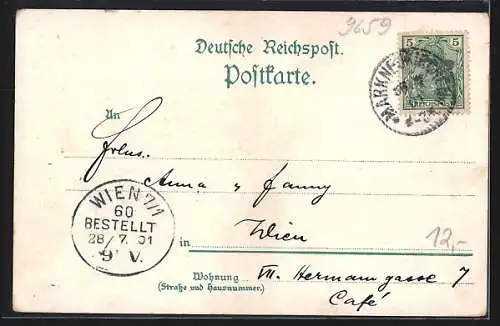 9659
Deutsche Reichspost.
Postkarte.
5 5
MARKNEUKIRCHEN
An
Frlns.
Anna u Fanny
WIEN 7/1
60
BESTELLT
28/7.01
9 V.
in Wien
12,-
Wohnung VII. Hermanngasse 7
(Straße und Hausnummer.)
Café